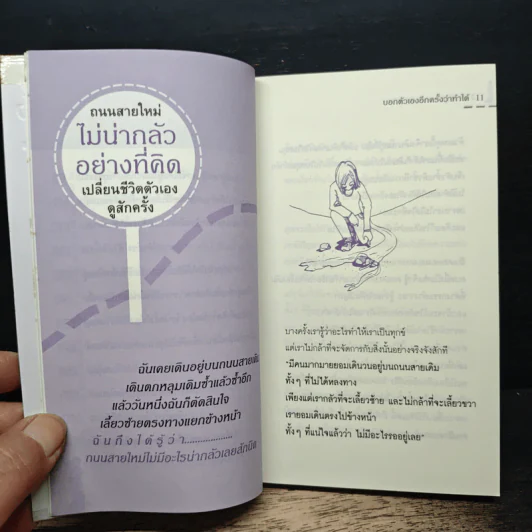 ถนนสายใหม่
ไม่น่ากลัว
อย่างที่คิด
เปลี่ยนชีวิตตัวเอง
ดูสักครั้ง
ฉันเคยเดินอยู่บนถนนสายเดิม
เดินตกหลุมเดิมซ้ำแล้วซ้ำอีก
แล้ววันหนึ่งฉันก็ตัดสินใจ
เลี้ยวซ้ายตรงทางแยกข้างหน้า
ฉันถึงได้รู้ว่า..................
ถนนสายใหม่ไม่มีอะไรน่ากลัวเลยสักนิด
บอกตัวเองอีกครั้งว่าทำได้ 11
บางครั้งเรารู้ว่าอะไรทำให้เราเป็นทุกข์
แต่เราไม่กล้าที่จะจัดการกับสิ่งนั้นอย่างจริงจังสักที
"มีคนมากมายยอมเดินวนอยู่บนถนนสายเดิม
ทั้งๆ ที่ไม่ได้หลงทาง
เพียงแต่เรากลัวที่จะเลี้ยวซ้าย และไม่กล้าที่จะเลี้ยวขวา
เรายอมเดินตรงไปข้างหน้า
ทั้งๆ ที่แน่ใจแล้วว่า ไม่มีอะไรรออยู่เลย"